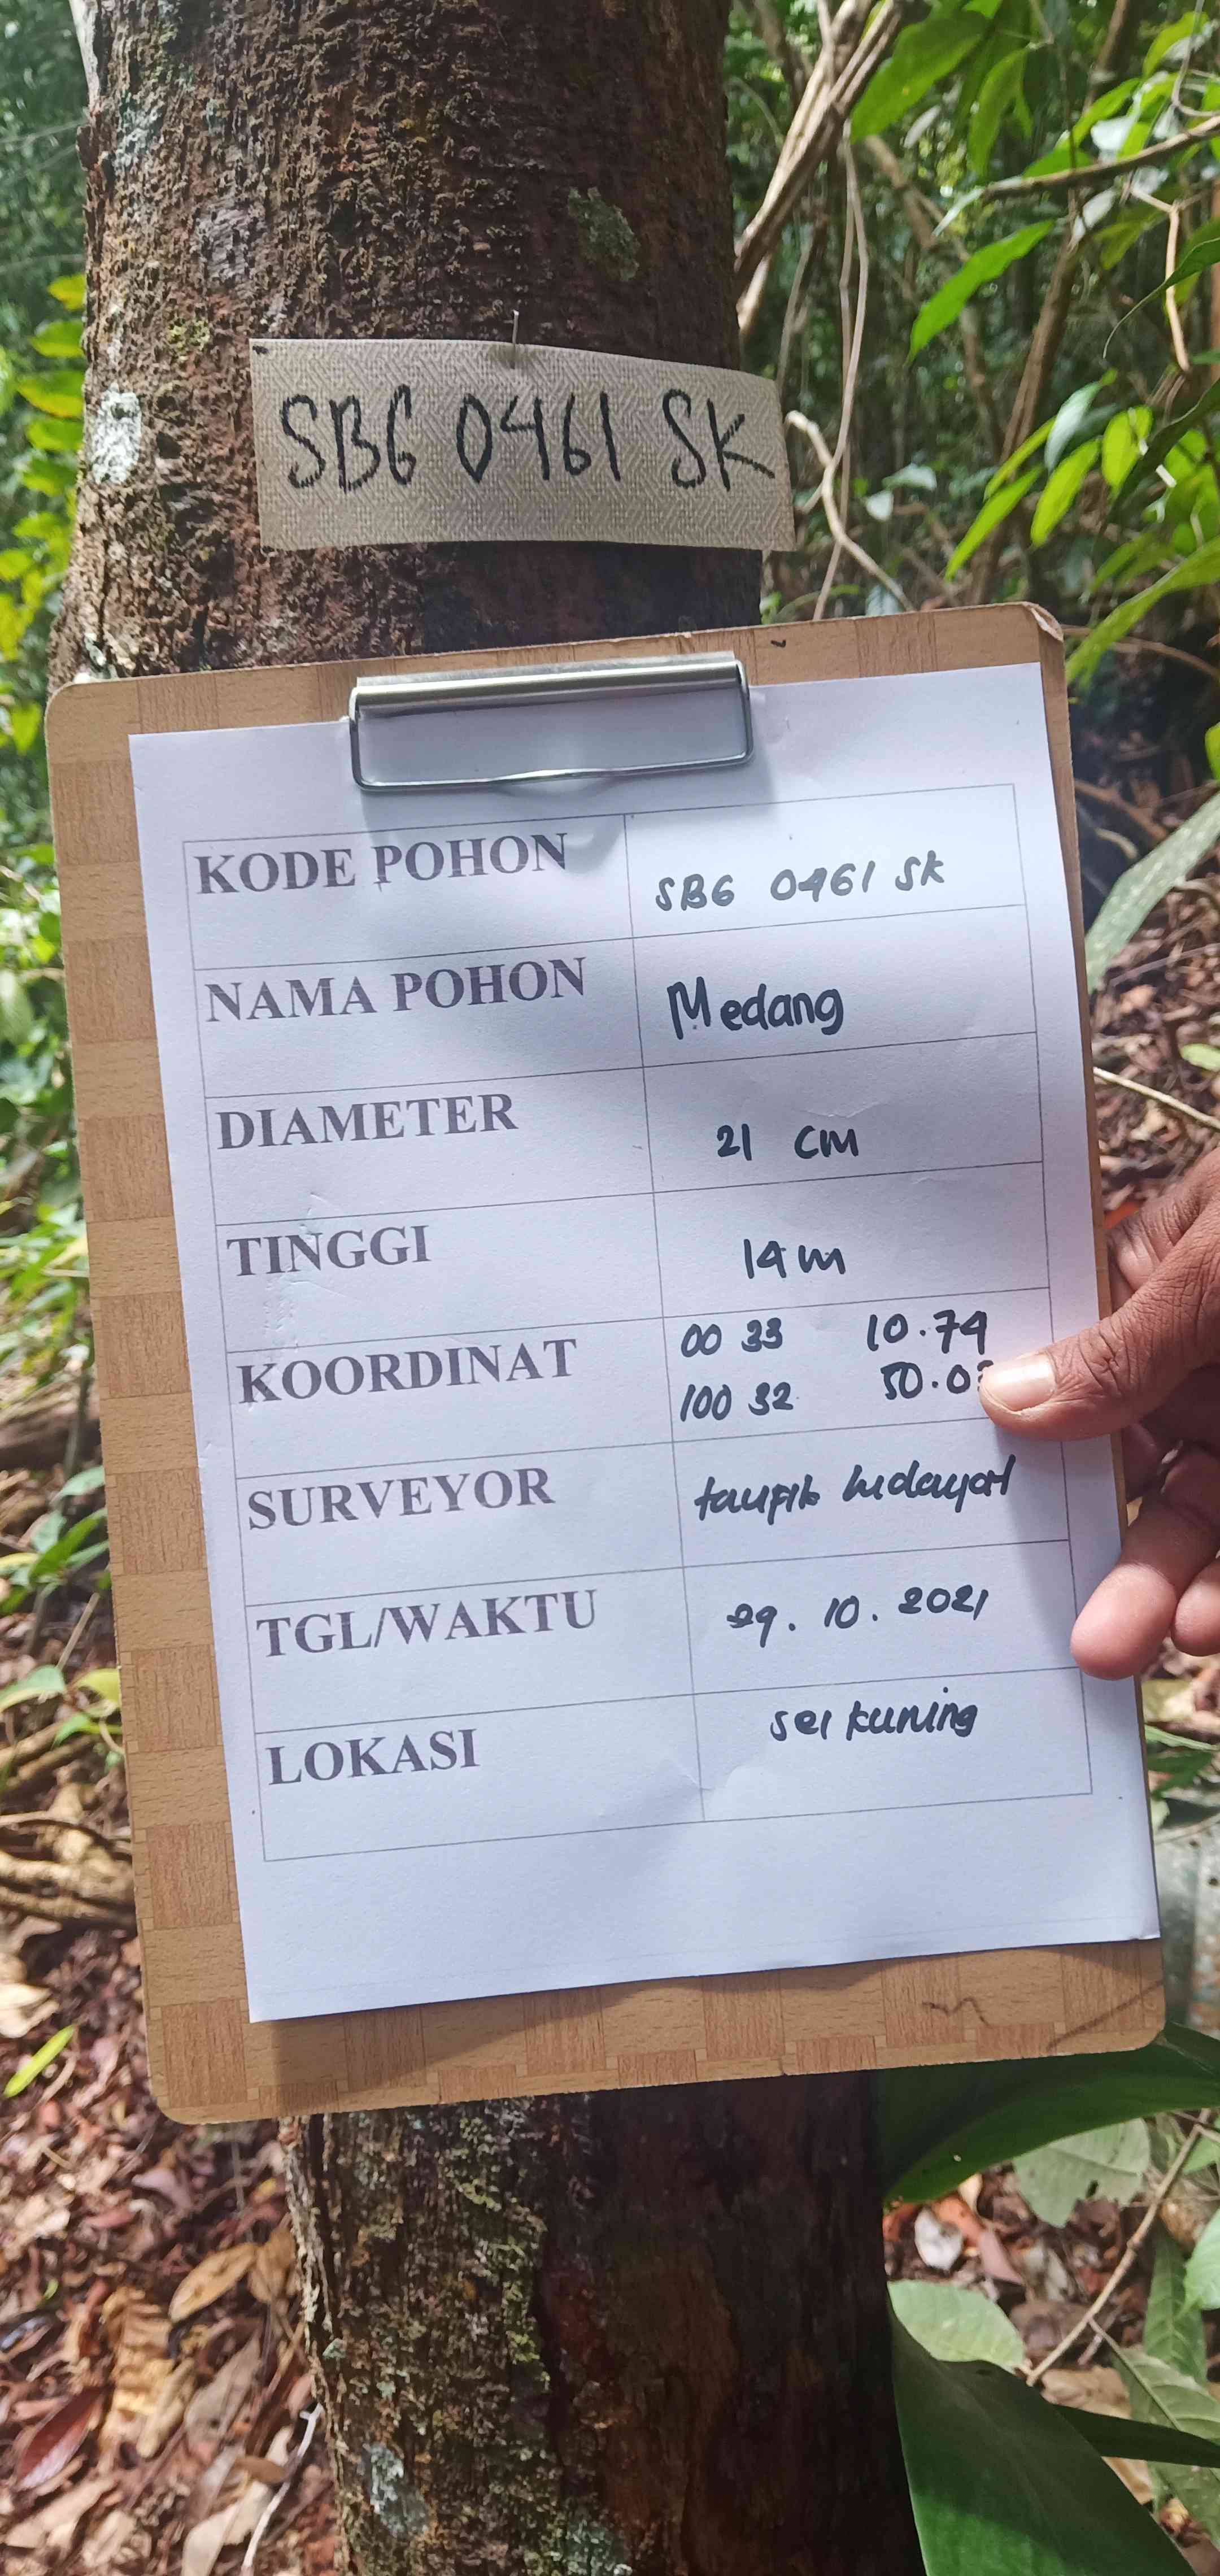 SBG 0461 SK
KODE POHON SBG 0461 SK
NAMA POHON Medang
DIAMETER 21 CM
TINGGI 14 m
KOORDINAT 00 33 10.74
100 32
SURVEYOR taufik hidayat
TGL/WAKTU 29. 10. 2021
LOKASI sei kuning